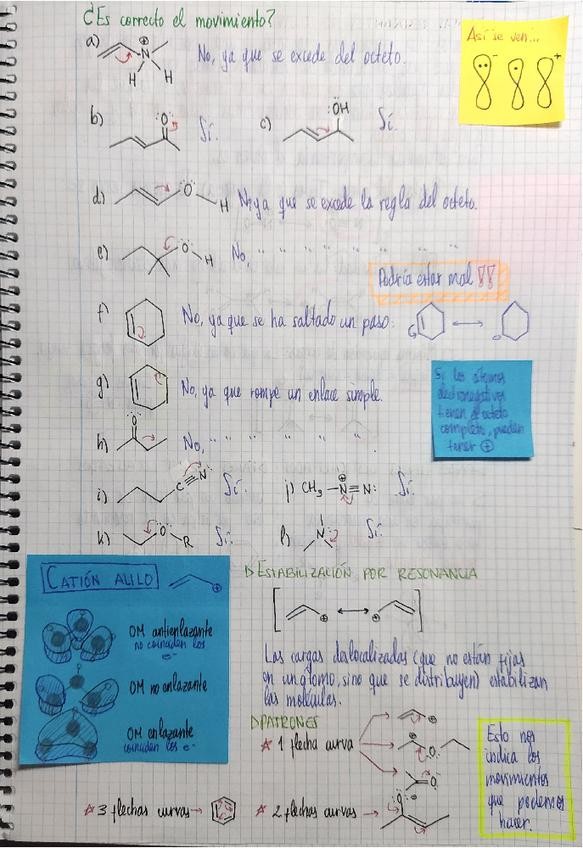 ¿Es correcto el movimiento?
Así se ven...
a) No, ya que se excede del octeto.
N
H H
b) O Sí.
c) OH Sí.
d) O H No, ya que se excede la regla del octeto.
e) O H No, " " " " " " "
Podría estar mal !!
f) No, ya que se ha saltado un paso:
g) No, ya que rompe un enlace simple.
Si los átomos
electronegativos
tienen el octeto
completo, pueden
tener +
h) O No, " " " " "
i) C≡N Sí.
j) CH3-N≡N: Sí.
k) O R Sí.
l) N Sí.
CATIÓN ALILO
OM antienlazante
no coinciden los
e-
OM no enlazante
OM enlazante
coinciden los e-
ESTABILIZACIÓN POR RESONANCIA
Las cargas deslocalizadas (que no están fijas
en un átomo, sino que se distribuyen) estabilizan
las moléculas.
PATRONES
1 flecha curva
O
O
Esto nos
indica los
movimientos
que podemos
hacer.
3 flechas curvas
2 flechas curvas
O